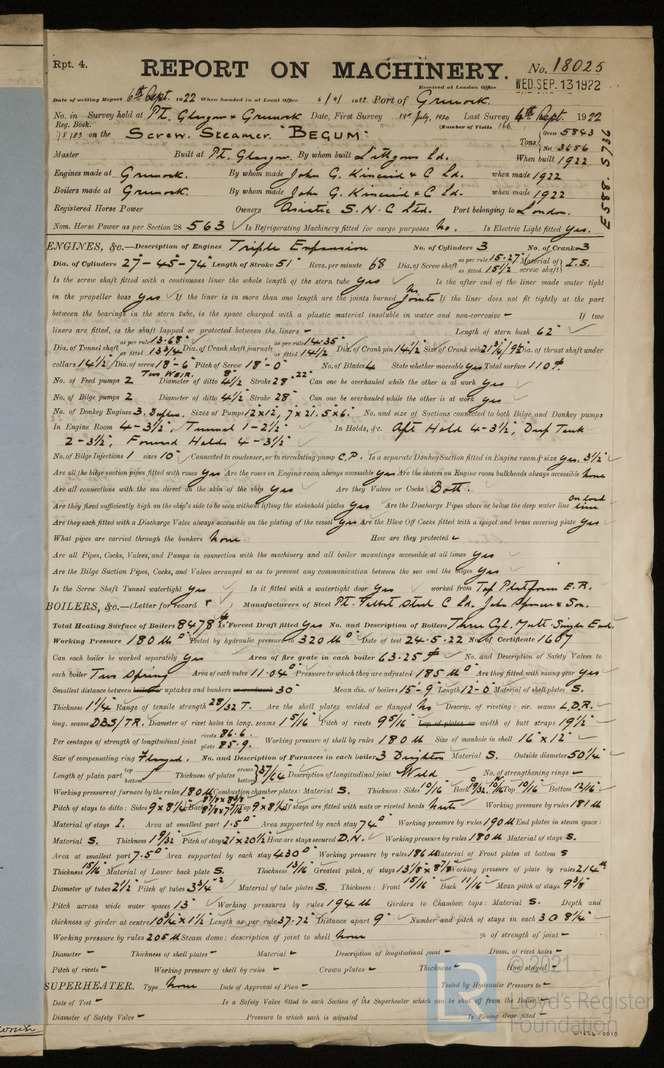 Rpt. 4.
REPORT ON MACHINERY.
No. 18025
Received at London Office WED. SEP. 13 1922
Date of writing Report 6th Sept. 1922 When handed in at Local Office 6/9/1922 Port of Greenock.
No. in Survey held at Pt. Glasgow & Greenock Date, First Survey 19th July, 1920 Last Survey 4th Sept. 1922
Reg. Book. (Number of Visits 166
78183 on the Screw Steamer "BEGUM"
Tons { Gross 5843
Net 3656
Master Built at Pt. Glasgow. By whom built Lithgows Ld. When built 1922
Engines made at Greenock. By whom made John G. Kincaid & C Ld. when made 1922
Boilers made at Greenock. By whom made John G. Kincaid & C Ld. when made 1922
Registered Horse Power Owners Asiatic S. N. C Ltd. Port belonging to London.
Nom. Horse Power as per Section 28 563 Is Refrigerating Machinery fitted for cargo purposes No. Is Electric Light fitted Yes.
ENGINES, &c.—Description of Engines Triple Expansion No. of Cylinders 3 No. of Cranks 3
Dia. of Cylinders 27-45-74 Length of Stroke 51 Revs. per minute 68 Dia. of Screw shaft as per rule 15.27 as fitted 15½ Material of screw shaft I.S.
Is the screw shaft fitted with a continuous liner the whole length of the stern tube Yes Is the after end of the liner made water tight
in the propeller boss Yes If the liner is in more than one length are the joints burned No Joints If the liner does not fit tightly at the part
between the bearings in the stern tube, is the space charged with a plastic material insoluble in water and non-corrosive - If two
liners are fitted, is the shaft lapped or protected between the liners - Length of stern bush 62"
Dia. of Tunnel shaft as per rule 13.68 as fitted 13¾ Dia. of Crank shaft journals as per rule 14.35 as fitted 14½ Dia. of Crank pin 14½ Size of Crank webs Dia. of thrust shaft under
collars 14½ Dia. of screw 18-6 Pitch of Screw 18-0 No. of Blades 4 State whether moveable Yes Total surface 110
No. of Feed pumps 2 Two Weir. Diameter of ditto Stroke Can one be overhauled while the other is at work Yes
No. of Bilge pumps 2 Diameter of ditto 4½ Stroke 28 Can one be overhauled while the other is at work Yes
No. of Donkey Engines 3, Duplex. Sizes of Pumps 12x12, 7x21. 5x6. No. and size of Suctions connected to both Bilge and Donkey pumps
In Engine Room 4-3½, Tunnel 1-2½ In Holds, &c. Aft Hold 4-3½, Deep Tank
2-3½, Forward Holds 4-3½
No. of Bilge Injections 1 sizes 10 Connected to condenser, or to circulating pump C.P. Is a separate Donkey Suction fitted in Engine room & size Yes. 3½
Are all the bilge suction pipes fitted with roses Yes Are the roses in Engine room always accessible Yes Are the sluices on Engine room bulkheads always accessible None
Are all connections with the sea direct on the skin of the ship Yes Are they Valves or Cocks Both.
Are they fixed sufficiently high on the ship's side to be seen without lifting the stokehold plates Yes Are the Discharge Pipes above or below the deep water line on load line
Are they each fitted with a Discharge Valve always accessible on the plating of the vessel Yes Are the Blow Off Cocks fitted with a spigot and brass covering plate Yes
What pipes are carried through the bunkers None How are they protected -
Are all Pipes, Cocks, Valves, and Pumps in connection with the machinery and all boiler mountings accessible at all times Yes
Are the Bilge Suction Pipes, Cocks, and Valves arranged so as to prevent any communication between the sea and the bilges Yes
Is the Screw Shaft Tunnel watertight Yes Is it fitted with a watertight door Yes worked from Top Platform E.R.
BOILERS, &c.—(Letter for record r) Manufacturers of Steel C Ld. John Spencer & Son.
Total Heating Surface of Boilers 8478 Is Forced Draft fitted Yes No. and Description of Boilers Three Cyl. Mult. Single End.
Working Pressure 180 lb Tested by hydraulic pressure to 320 lb Date of test 24.5.22 No. of Certificate 1607
Can each boiler be worked separately Yes Area of fire grate in each boiler 63.25 No. and Description of Safety Valves to
each boiler Two Spring Area of each valve 11.04 Pressure to which they are adjusted 185 lb Are they fitted with easing gear Yes
Smallest distance between boilers or uptakes and bunkers or woodwork 30 Mean dia. of boilers 15-9 Length 12-0 Material of shell plates S.
Thickness 1¼ Range of tensile strength 28/32 T. Are the shell plates welded or flanged No Descrip. of riveting: cir. seams L.D.R.
long. seams DBS/TR. Diameter of rivet holes in long. seams 1 5/16 Pitch of rivets 9 5/16 Lap of plates or width of butt straps 19½
Per centages of strength of longitudinal joint rivets 86.6. plate 85.9. Working pressure of shell by rules 180 lb Size of manhole in shell 16 x 12
Size of compensating ring Flanged. No. and Description of Furnaces in each boiler 3 Deighton Material S. Outside diameter 50¼
Length of plain part top bottom Thickness of plates crown bottom 37/64 Description of longitudinal joint Weld No. of strengthening rings -
Working pressure of furnace by the rules 180 lb Combustion chamber plates: Material S. Thickness: Sides Back Top Bottom
Pitch of stays to ditto: Sides 9 x 8¼ Back Top 9 x 8¼ If stays are fitted with nuts or riveted heads Nuts Working pressure by rules 181 lb
Material of stays I. Area at smallest part 1.5 Area supported by each stay 74 Working pressure by rules 190 lb End plates in steam space:
Material S. Thickness 1 9/32 Pitch of stays 21 x 20½ How are stays secured D.N. Working pressure by rules 180 lb Material of stays S.
Area at smallest part 7.5 Area supported by each stay 430 Working pressure by rules 186 lb Material of Front plates at bottom S
Thickness 15/16 Material of Lower back plate S. Thickness Greatest pitch of stays Working pressure of plate by rules 214 lb
Diameter of tubes 2½ Pitch of tubes 3¾ Material of tube plates S. Thickness: Front 15/16 Back 11/16 Mean pitch of stays 9 3/8
Pitch across wide water spaces 13 Working pressures by rules 194 lb Girders to Chamber tops: Material S. Depth and
thickness of girder at centre 10¾ x 1½ Length as per rule 37.72 Distance apart 9 Number and pitch of stays in each 3 @ 8¼
Working pressure by rules 205 lb Steam dome: description of joint to shell None % of strength of joint -
Diameter - Thickness of shell plates - Material - Description of longitudinal joint - Diam. of rivet holes -
Pitch of rivets - Working pressure of shell by rules - Crown plates - Thickness - How stayed -
SUPERHEATER. Type None Date of Approval of Plan - Tested by Hydraulic Pressure to -
Date of Test - Is a Safety Valve fitted to each Section of the Superheater which can be shut off from the Boiler -
Diameter of Safety Valve - Pressure to which each is adjusted - Is Easing Gear fitted -
© 2021
Lloyd's Register
Foundation